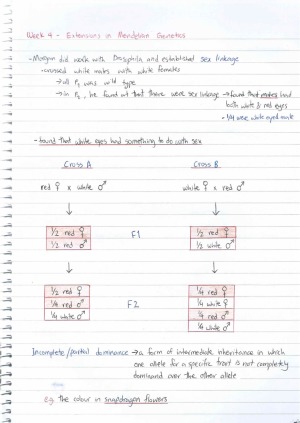 Week 4 - Extensions in Mendelian Genetics
- Morgan did work with Drosophila and established sex linkage
- crossed white males with white females
→ all F1 was wild type
→ in F2, he found out that there were sex linkage → found that males had
both white & red eyes
- 1/4 were white eyed male
- found that white eyes had something to do with sex
Cross A Cross B
red ♀ x white ♂ white ♀ x red ♂
↓ ↓
1/2 red ♀ F1 1/2 red ♀
1/2 red ♂ 1/2 white ♂
↓ ↓
1/2 red ♀ F2 1/4 red ♀
1/4 red ♂ 1/4 white ♀
1/4 white ♂ 1/4 red ♂
1/4 white ♂
Incomplete/partial dominance → a form of intermediate inheritance in which
one allele for a specific trait is not completely
dominant over the other allele
eg the colour in snapdragon flowers